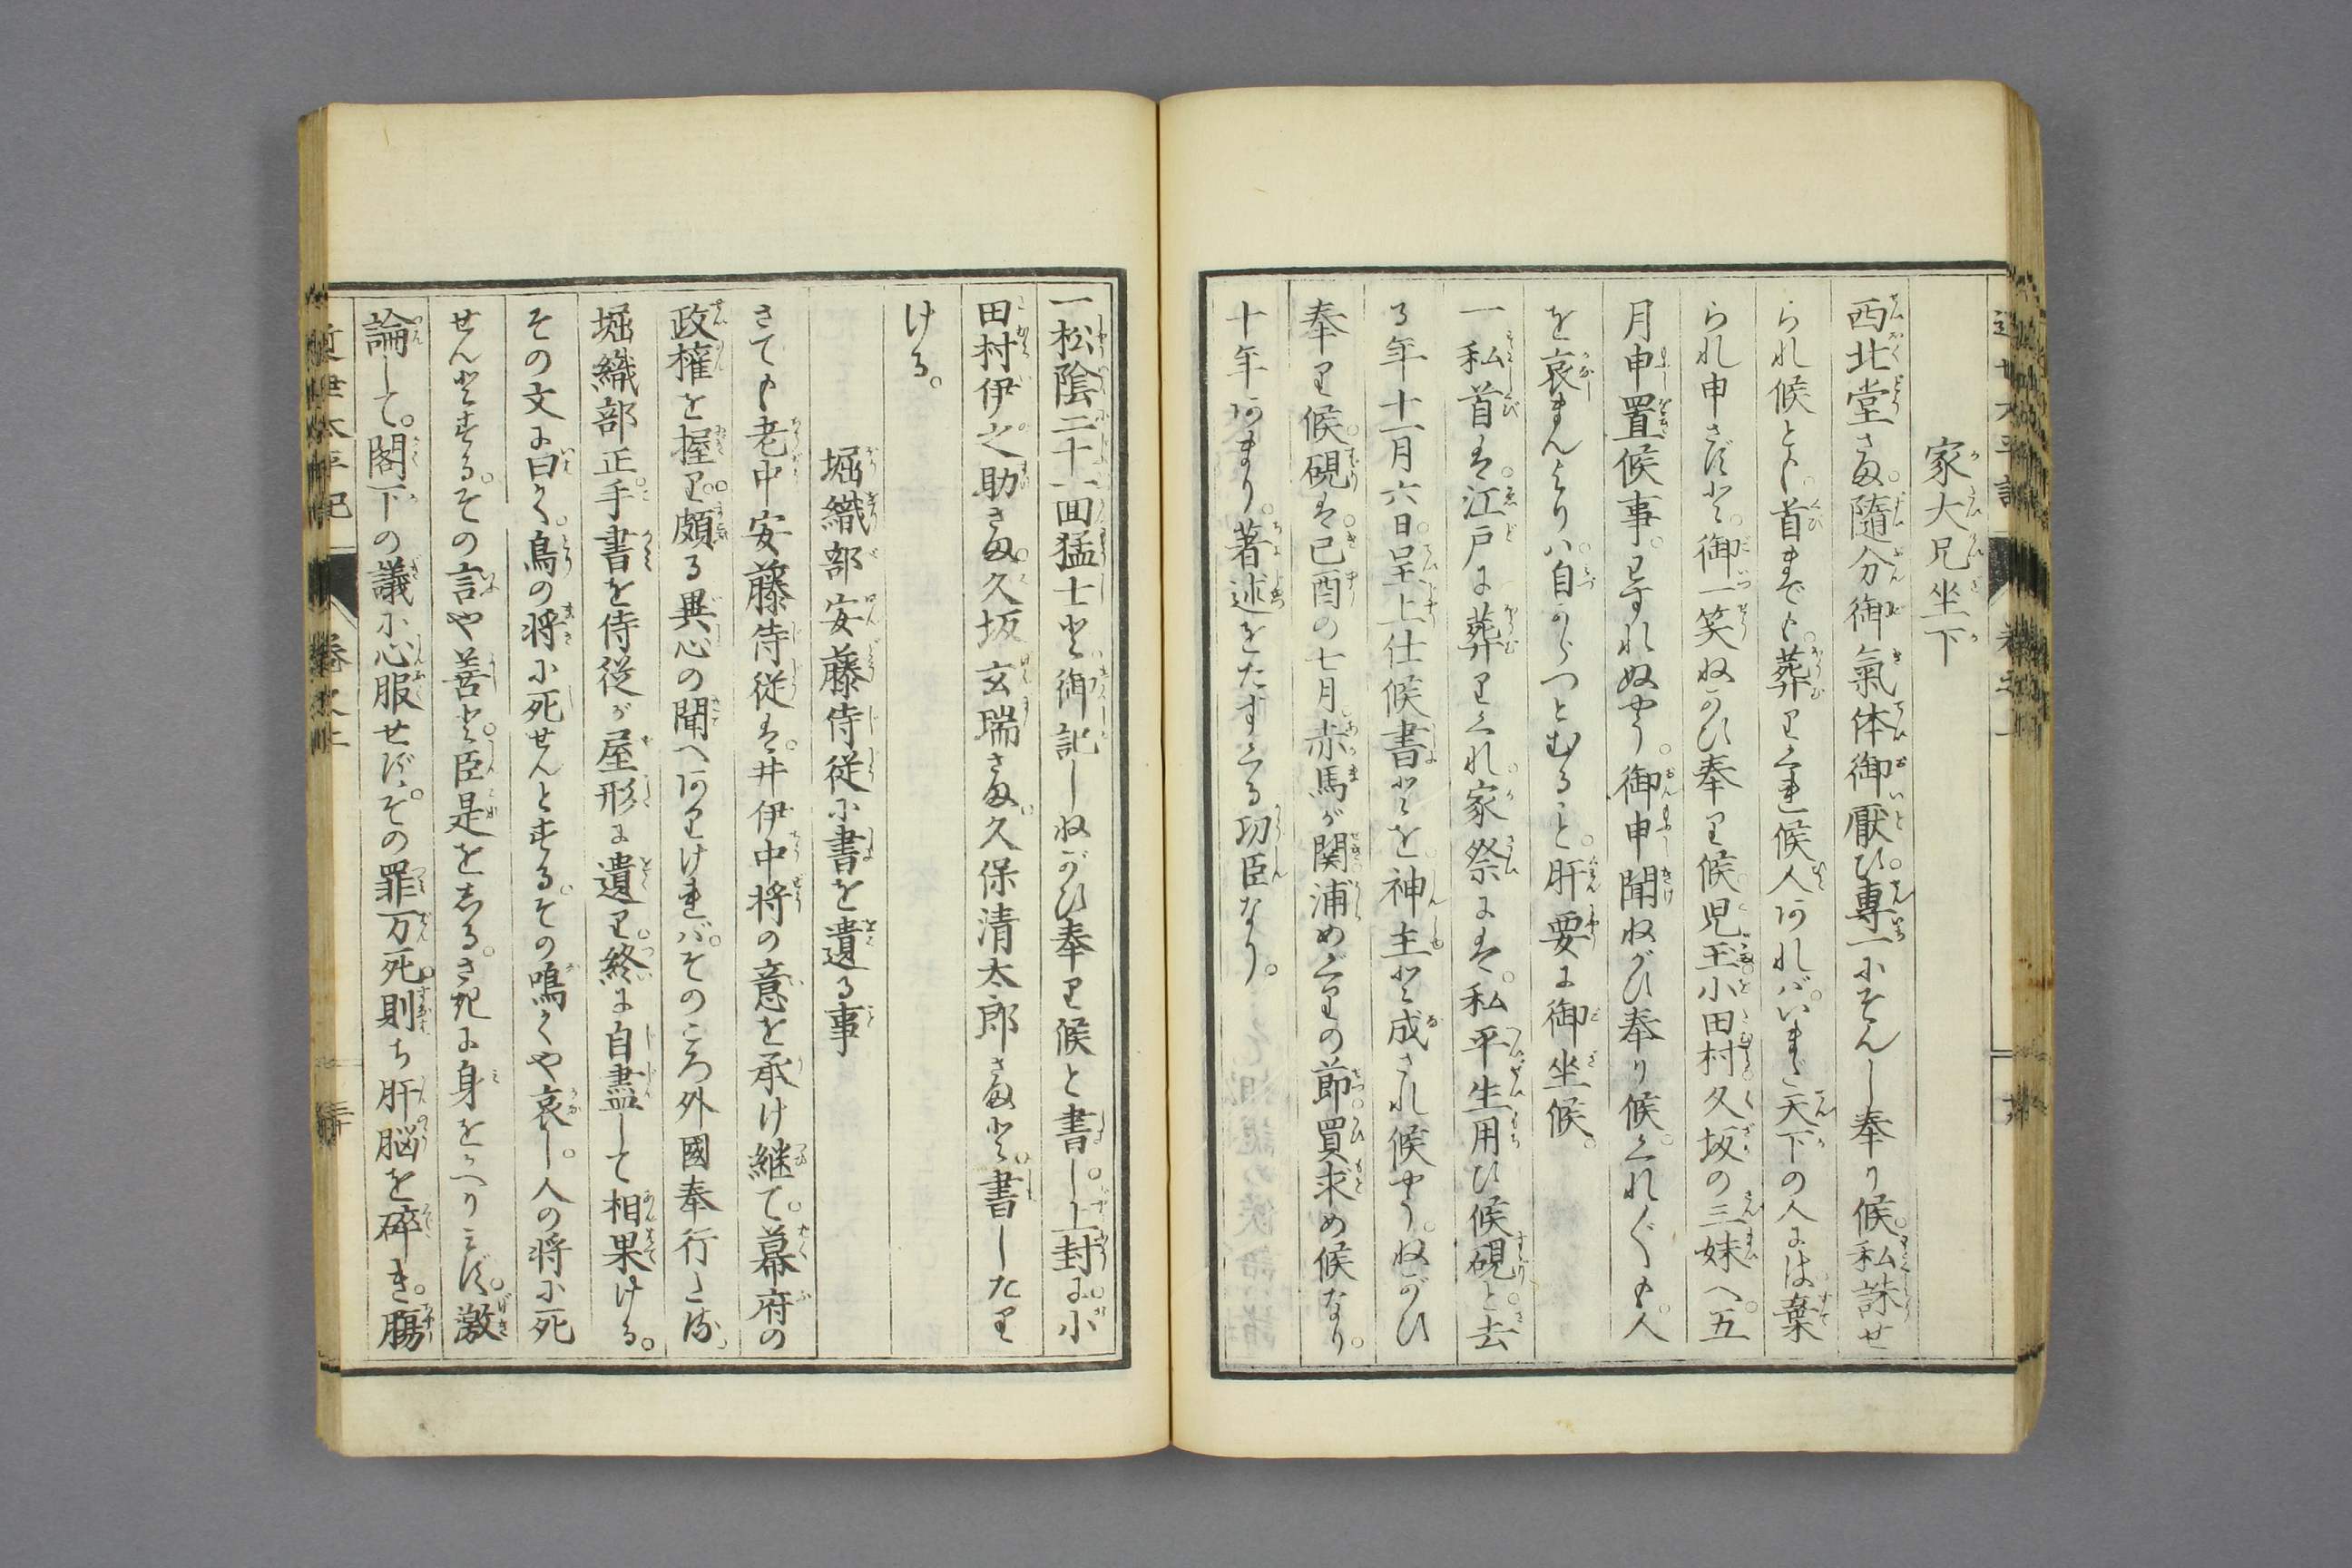 家大兄坐下
西北堂さま。隨分御氣体御厭ひ。專一にぞんじ奉り候。私誅せ
られ候とも。首までも。葬りくれ候人あれバ。いまだ天下の人には棄
られ申さずと。御一笑ねがひ奉り候。児玉小田村久坂の三妹へ。五
月申置候事。わすれぬやう。御申聞ねがひ奉り候。くれ〲も。人
を哀まんよりハ。自からつとむること。肝要に御坐候。
一私首ハ。江戸に葬りくれ。家祭にハ。私平生用ひ候硯と。去
る年十一月六日。呈上仕候書とを。神主と成され候やう。ねがひ
奉り候。硯ハ。己酉の七月。赤馬が関浦めぐりの節。買求め候なり。
十年あまり。著述をたすくる功臣なり。
一松陰二十一回猛士と御記しねがひ奉り候と書し。上封に。小
田村伊之助さま。久坂玄瑞さま久保清太郎さまと。書したり
ける。
堀織部安藤侍従に書を遺る事
さても老中安藤侍従ハ。井伊中将の意を承け継て。幕府の
政権を握り。頗る異心の聞へありけれバ。そのころ外國奉行たる。
堀織部正。手書を侍従が屋形に遺り。終に自盡して相果ける。
その文に曰く。鳥の将に死せんとする。その鳴くや哀し。人の将に死
せんとする。その言や善と。臣是をしる。さればに身をかへりみず。激
論して。閣下の議に心服せず。その罪万死。則ち肝脳を砕き。腸
近世太平記
巻之上